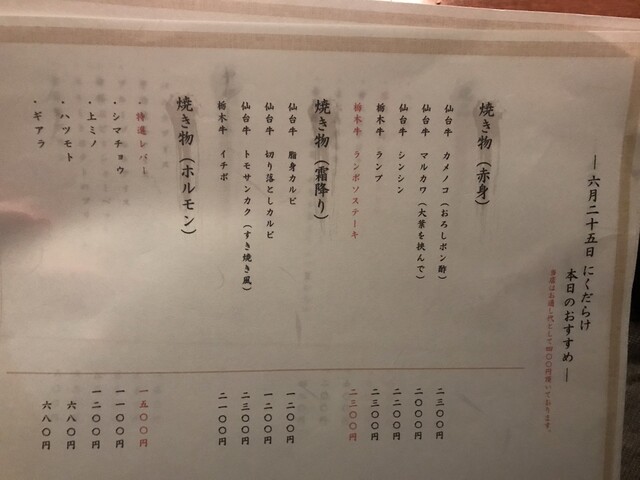 ― 六月二十五日 にくだらけ
本日のおすすめ ―
当店はお通し代として四〇〇円頂いております。
焼き物（赤身）
仙台牛 カメノコ（おろしポン酢） 二三〇〇円
仙台牛 マルカワ（大葉を挟んで） 二〇〇〇円
仙台牛 シンシン 二二〇〇円
栃木牛 ランプ 二三〇〇円
栃木牛 ランボソステーキ 二三〇〇円
焼き物（霜降り）
仙台牛 脂身カルビ 一二〇〇円
仙台牛 切り落としカルビ 一二〇〇円
仙台牛 トモサンカク（すき焼き風） 二三〇〇円
栃木牛 イチボ 二一〇〇円
焼き物（ホルモン）
・特選レバー 一五〇〇円
・シマチョウ 一一〇〇円
・上ミノ 一二〇〇円
・ハツモト 六八〇円
・ギアラ 六八〇円